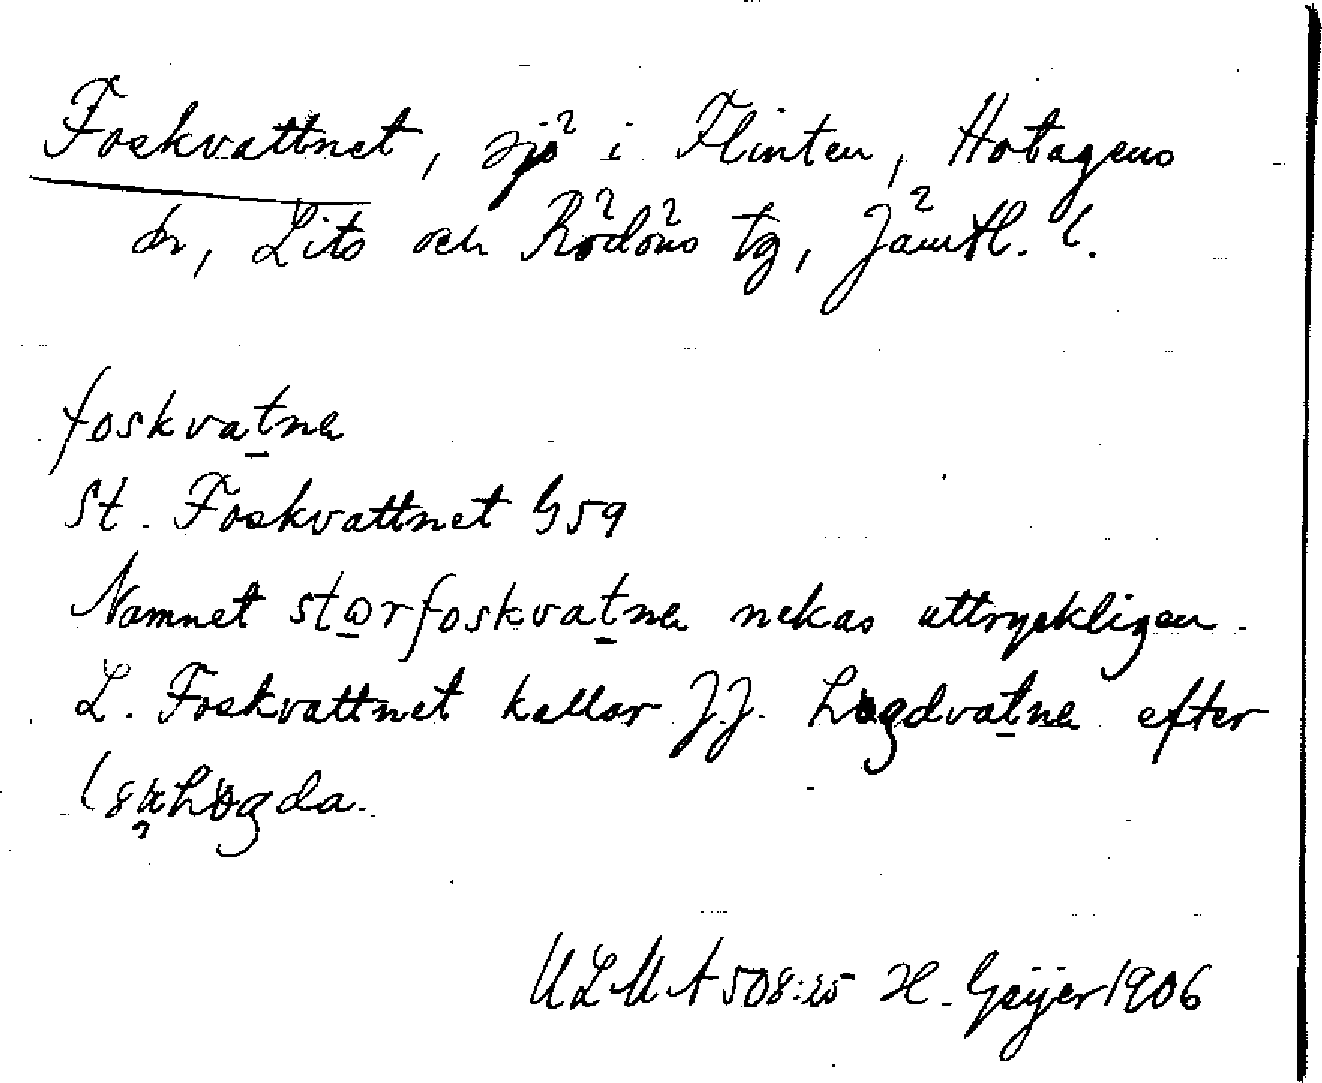 Foskvattnet, sjö i Flinten, Hotagens
sn, Lits och Rödöns tg, Jämtl. l.
foskvatna
St. Foskvattnet G59
Namnet starfoskvatna nekas uttryckligen.
L. Foskvattnet kallar J.J. högdvatna efter
ULMA 508:25 H. Geijer 1906